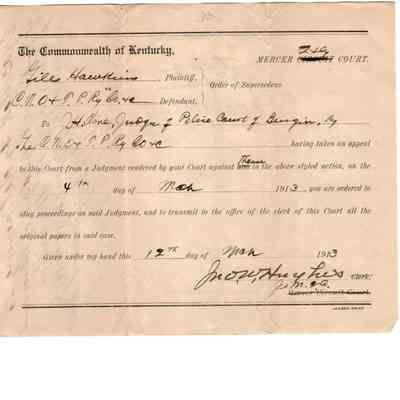 The Commonwealth of Kentucky,
MERCER Qtly COURT.
Giles Hawkins Plaintiff,
Order of Supersedeas
C.N.O & T.P. Ry Co. &c Defendant,
To J.H. Judge of Police Court of Burgin, Ky
The C.N.O & T.P Ry Co &c having taken an appeal
to this Court from a Judgment rendered by your Court against Them in the above styled action, on the
4th day of Mch 1913, you are ordered to
stay proceedings on said Judgment, and to transmit to the offer of the clerk of this Court all the
original papers in said case.
Given under my hand this 12th day of Mch 1913
Jno W, Hughes Clerk.
J. M. C.
Mercer Circuit Court.